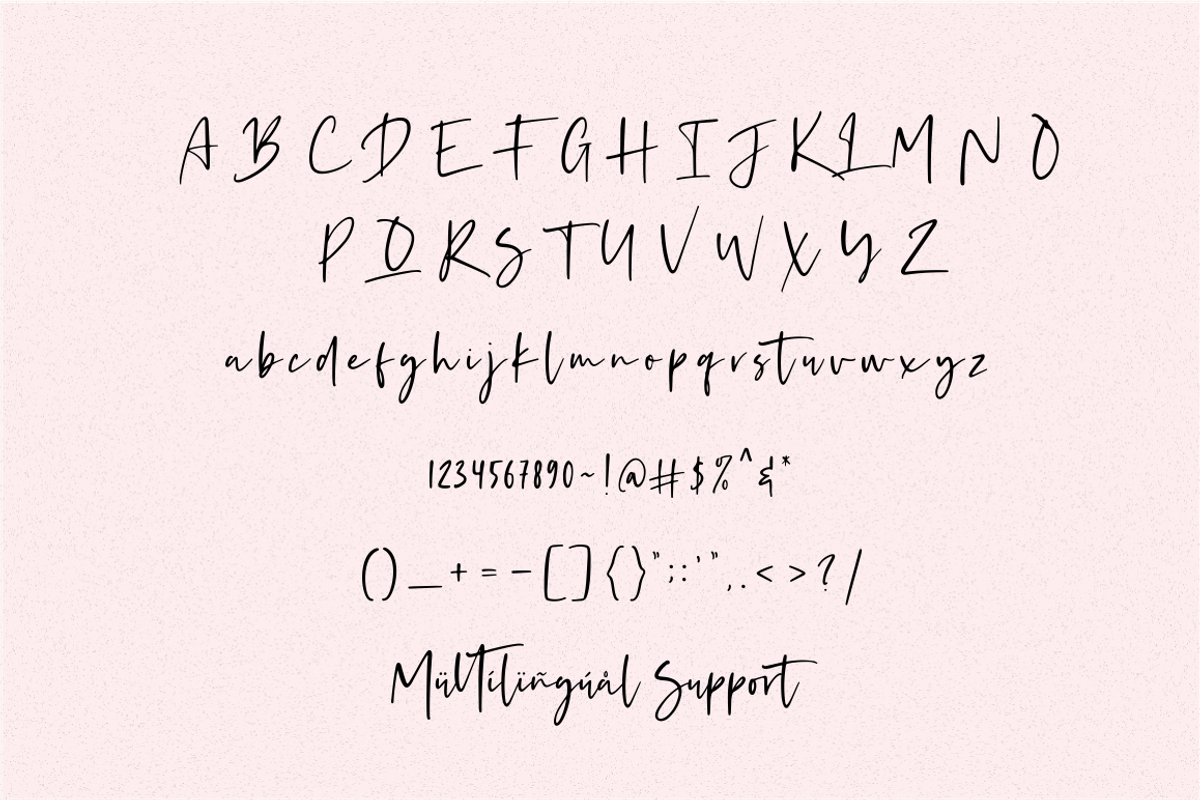 A B C D E F G H I J K L M N O
P Q R S T U V W X Y Z
a b c d e f g h i j k l m n o p q r s t u v w x y z
1234567890~!@#$%^&*
()_+=-[]{}";:'",.<>?/
Mültílïñgúål Support